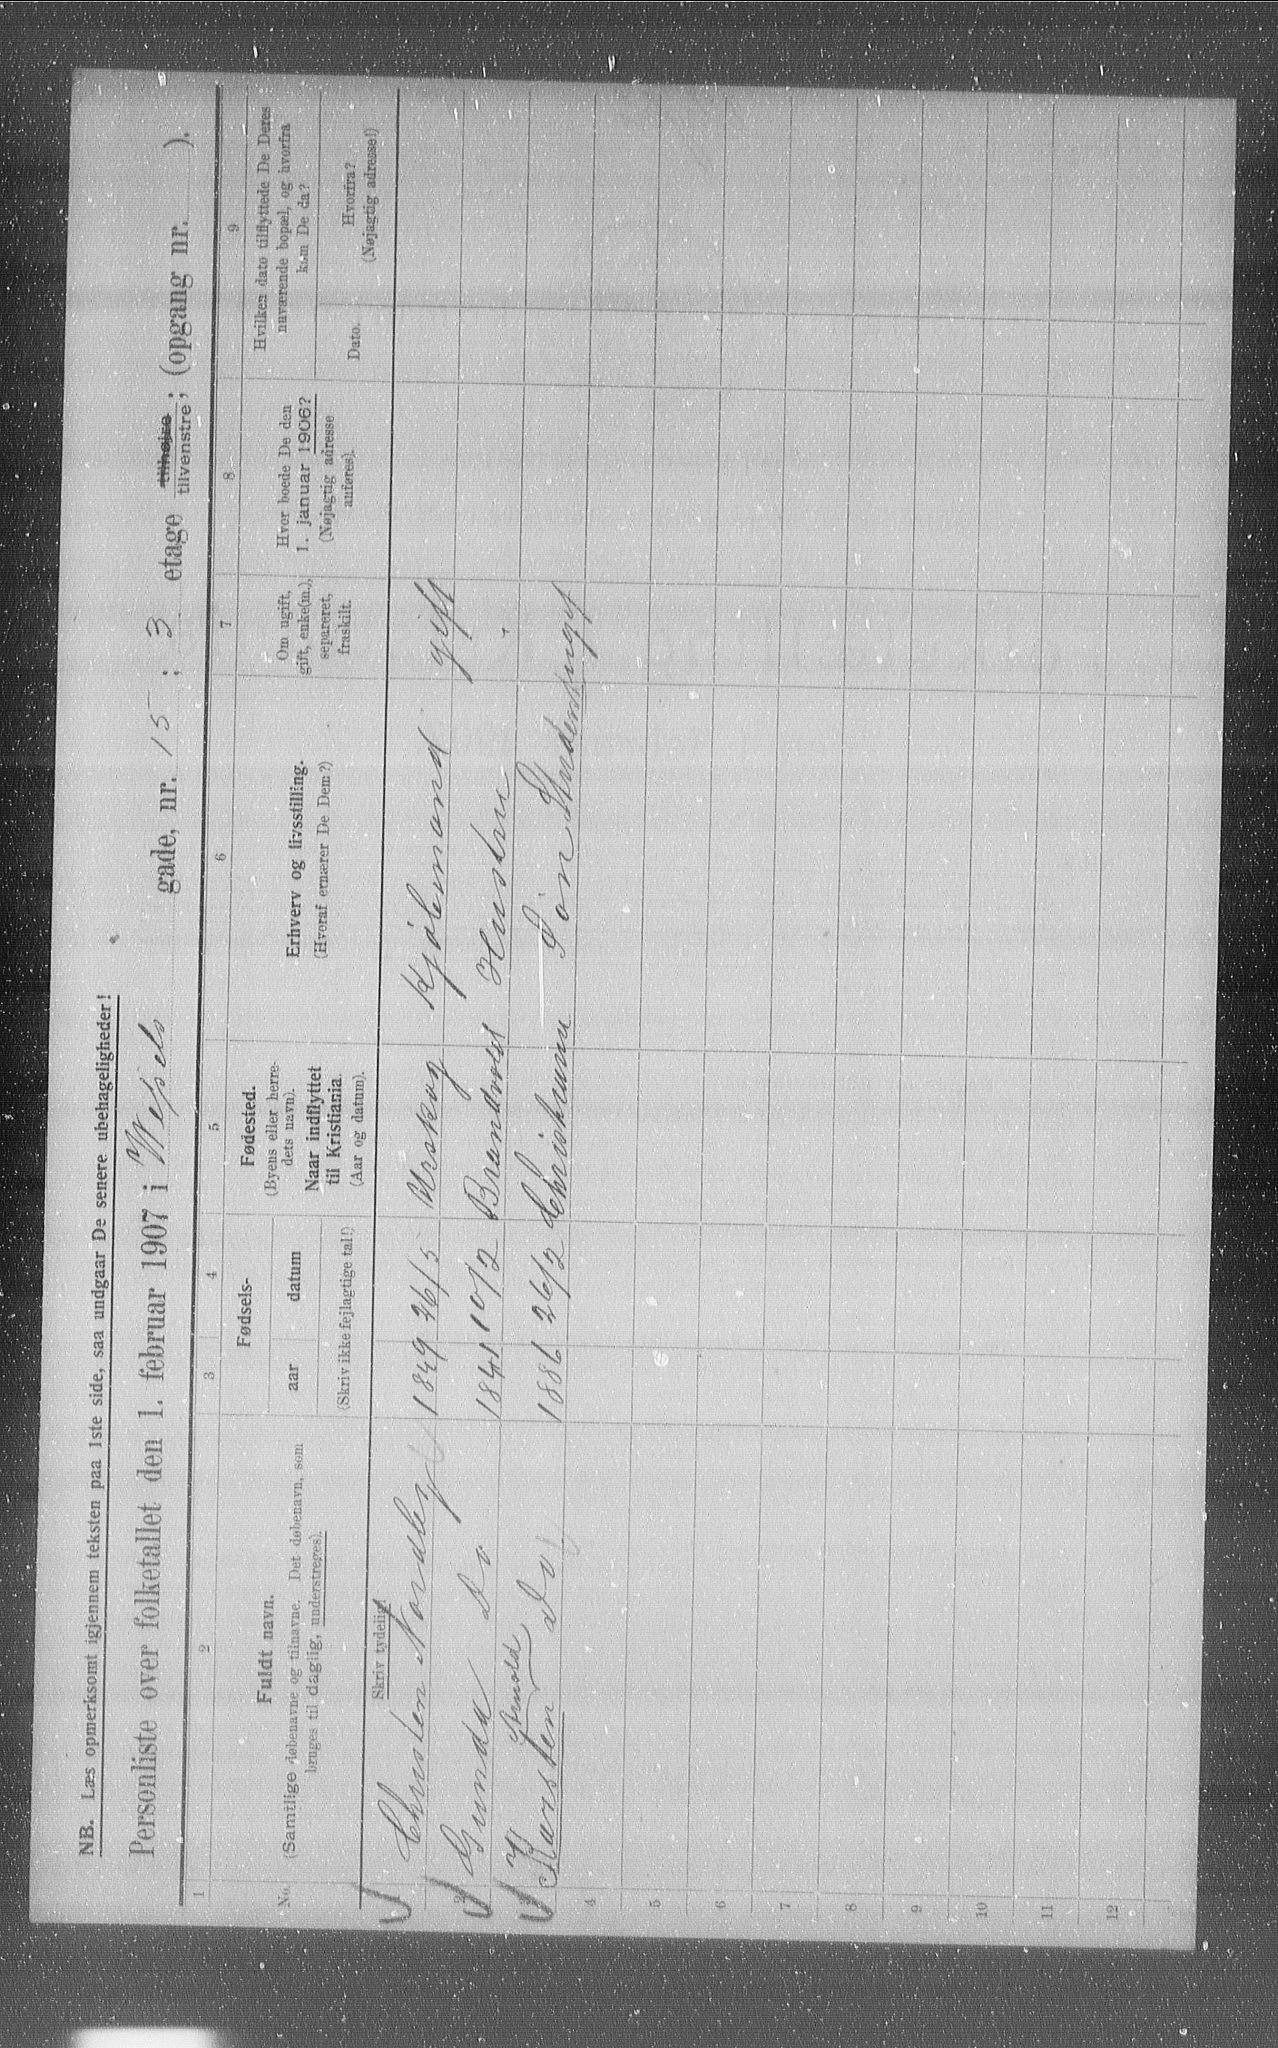 NB. Læs opmerksomt igjennem teksten paa 1ste side, saa undgaar De senere ubehageligheder!
Personliste over folketallet den 1. februar 1907 i Wessels gade, nr. 15 ; 3 etage tilhøjre tilvenstre ; (opgang nr. ).
1 2 3 4 5 6 7 8 9
No. Fuldt navn. (Samtlige døbenavne og tilnavne. Det døbenavn, som bruges til daglig, understreges).
Fødsels-
aar datum
(Skriv ikke fejlagtige tal!)
Fødested. (Byens eller herredets navn). Naar indflyttet til Kristiania. (Aar og datum).
Erhverv og livsstilling. (Hvoraf ernærer De Dem?)
Om ugift, gift, enke(m.), separeret, fraskilt.
Hvor boede De den 1. januar 1906? (Nøjagtig adresse anføres).
Hvilken dato tilflyttede De Deres nuværende bopæl, og hvorfra kom De da?
Dato. Hvorfra? (Nøjagtig adresse!)
Skriv tydelig!
Christen Nordby 1849 26/5 Urskog Kjøbmand gift
2 Gunda Do 1841 10/2 Brandvold Hustru "
3 Karsten Arnold Do 1886 26/2 Christiania Søn Student ugift
4
5
6
7
8
9
10
11
12